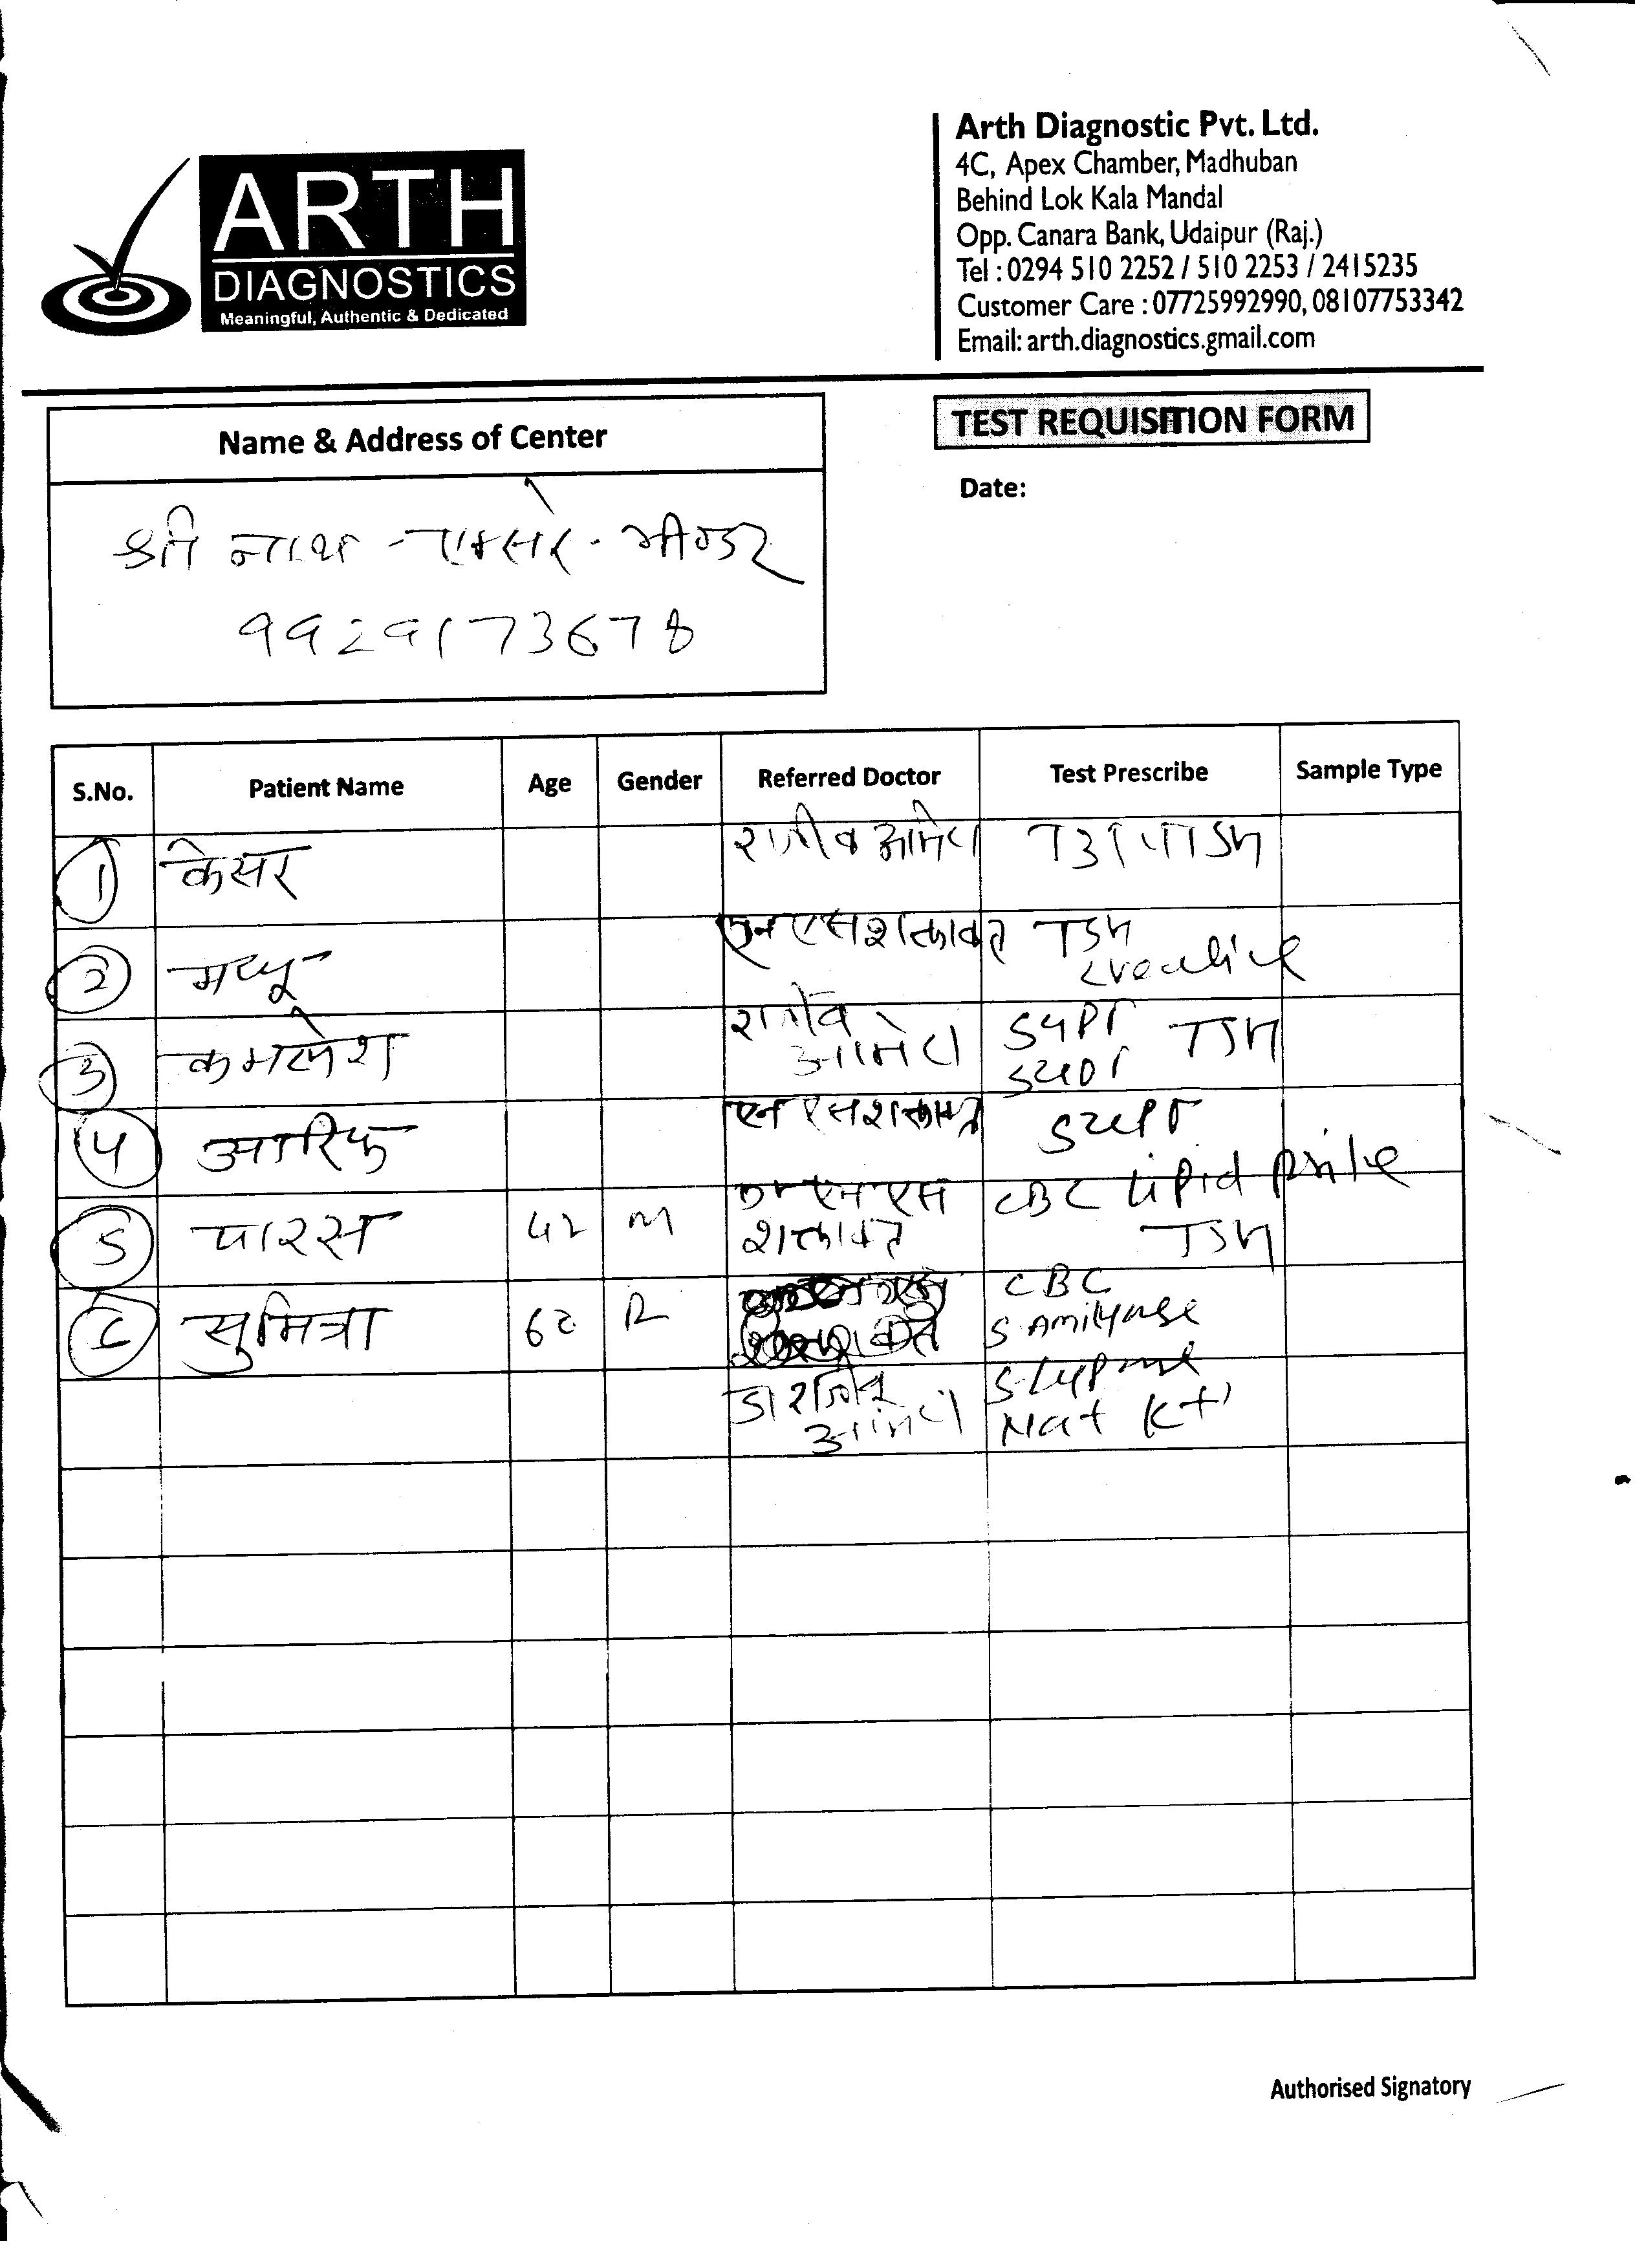 ARTH
DIAGNOSTICS
Meaningful, Authentic & Dedicated
Arth Diagnostic Pvt. Ltd.
4C, Apex Chamber, Madhuban
Behind Lok Kala Mandal
Opp. Canara Bank, Udaipur (Raj.)
Tel : 0294 510 2252 / 510 2253 / 2415235
Customer Care : 07725992990, 08107753342
Email: arth.diagnostics.gmail.com
Name & Address of Center
TEST REQUISITION FORM
Date:
श्री नाथ एक्सरे - भीण्डर
9929173678
S.No. Patient Name Age Gender Referred Doctor Test Prescribe Sample Type
1 केसर राजीव आमेटा T3T4TSH
2 एन एस शक्तावत TSH
3 कमलेश राजीव आमेटा SGPT TSH
4 आरिफ एन एस शक्तावत
5 पारस 42 M एन एस शक्तावत CBC Lipid
TSH
6 सुमित्रा CBC
S Amilyase
डा राजीव आमेटा
Na+ K+
Authorised Signatory